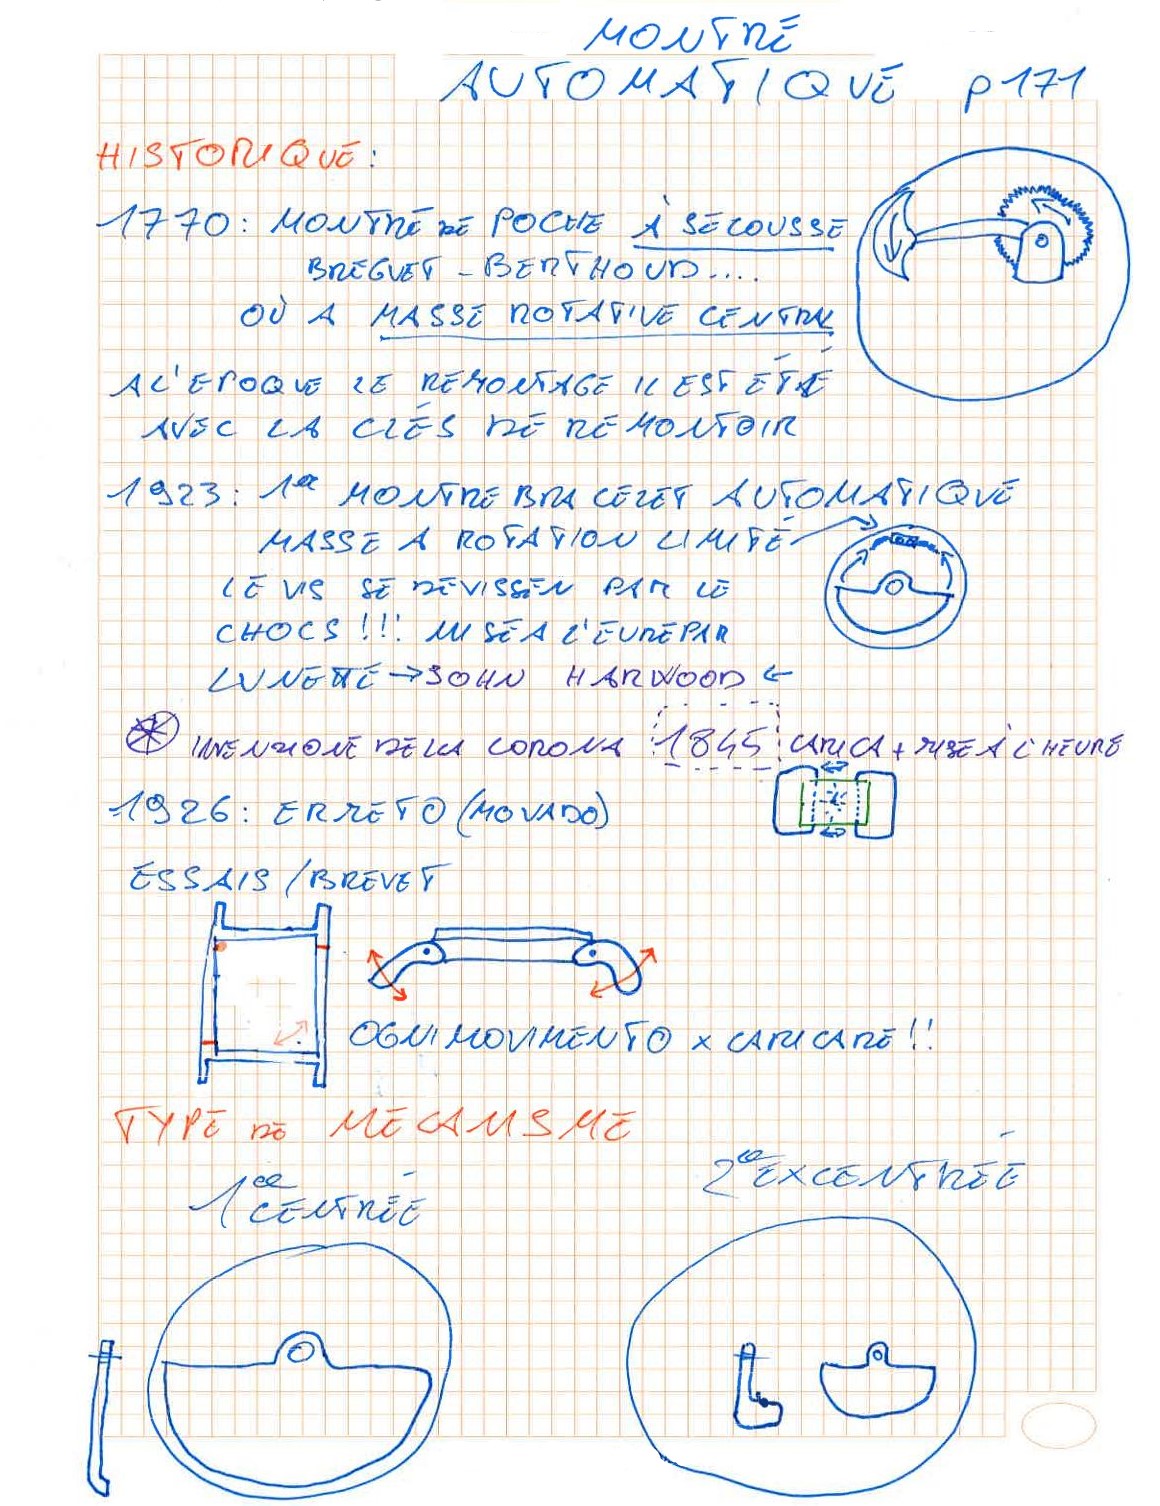 MONTRE
AUTOMATIQUE p 171
HISTORIQUE:
1770: MONTRE DE POCHE À SECOUSSE
BREGUET - BERTHOUD....
OÙ A MASSE ROTATIVE CENTRAL
A L'EPOQUE LE REMONTAGE IL EST ÉTÉ
AVEC LA CLÉS DE REMONTOIR
1923: 1er MONTRE BRACELET AUTOMATIQUE
MASSE A ROTATION LIMITÉ
LE VIS SE DEVISSEN PAR LE
CHOCS!!! MISE A L'EURE PAR
LUNETTE → JOHN HARWOOD ←
INVENZIONE DELLA CORONA 1845 CARICA + MISE À L'HEURE
1926: ERMETO (MOVADO)
ESSAIS / BREVET
OGNI MOVIMENTO x CARICARE!!
TYPE DE MECANISME
1ce CENTRÉE
2ce EXCENTRÉE